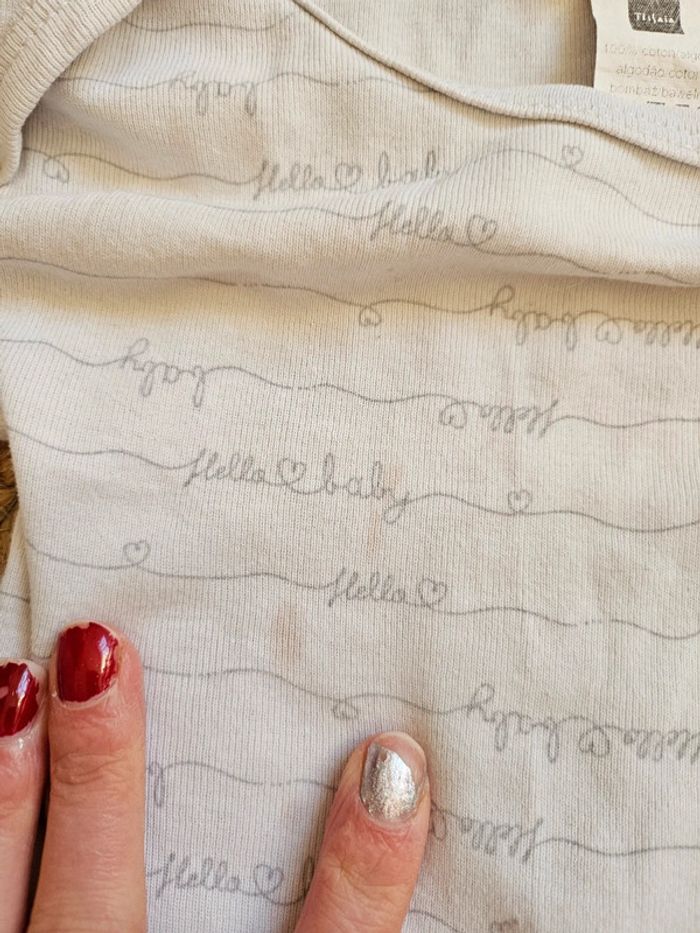 Tissaia
100% coton/algo
algodão/coto
bombaž/baweł
baby
Hello baby
Hello
Hello baby
Hello
baby
Hello baby
Hello
Hello baby
Hello
Hello